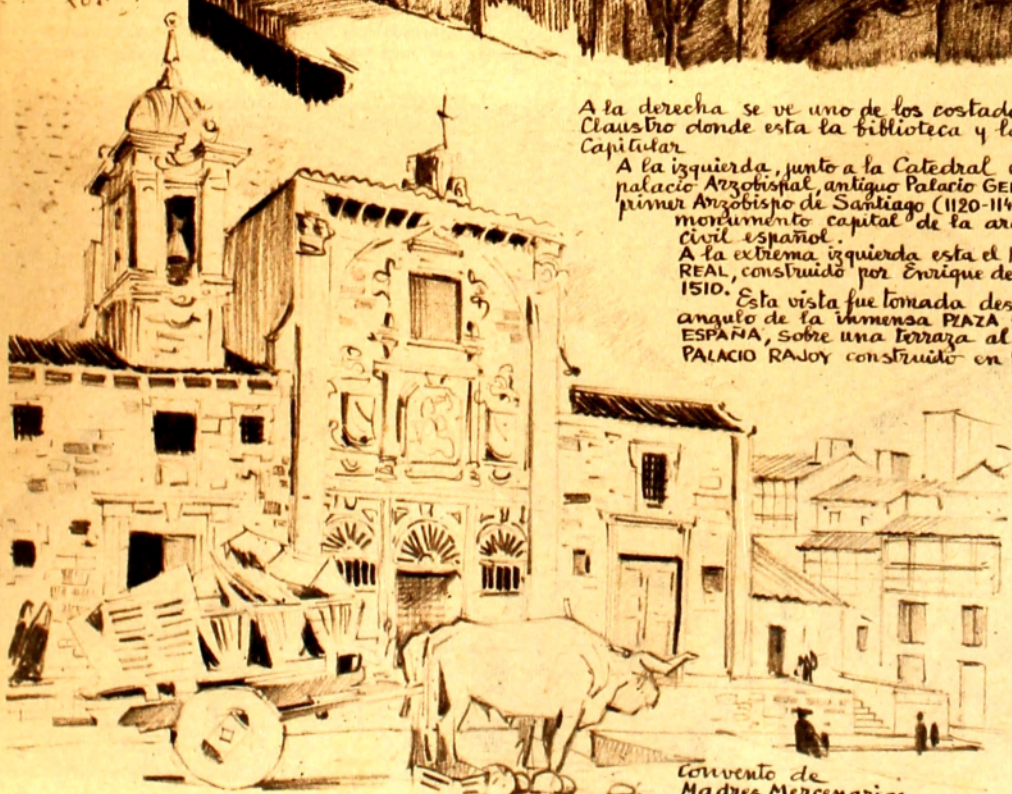 A la derecha se ve uno de los costad
Claustro donde esta la biblioteca y l
Capitular
A la izquierda, junto a la Catedral
palacio Arzobispal, antiguo Palacio GE
primer Arzobispo de Santiago (1120-114
monumento capital de la ar
civil español.
A la extrema izquierda esta el
REAL, construido por Enrique de
1510.
Esta vista fue tomada des
angulo de la inmensa PLAZA
ESPAÑA, sobre una terraza al
PALACIO RAJOY construido en
Convento de
Madres Mercenarias